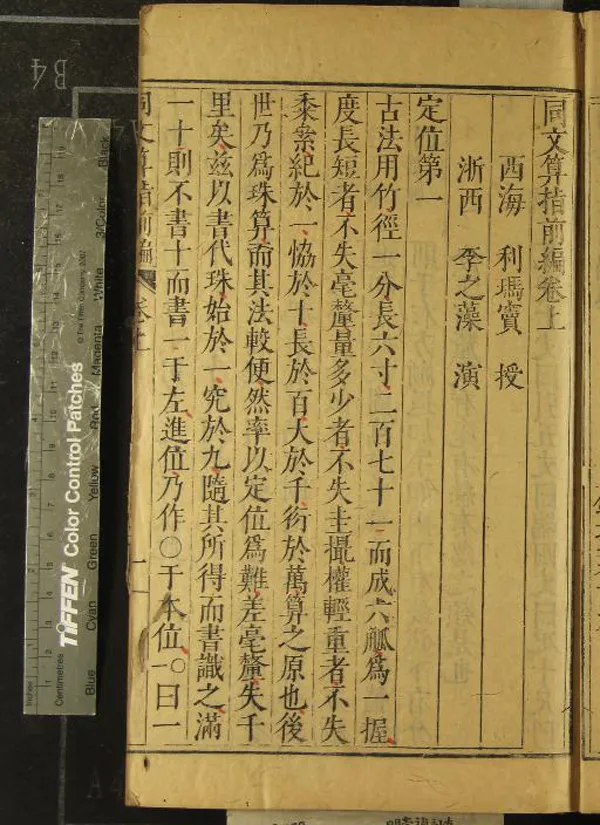 同文算指前編卷上
西海 利瑪竇 授
浙西 李之藻 演
定位第一
古法用竹徑一分長六寸二百七十一而成六觚為一握
度長短者不失毫釐量多少者不失圭撮權輕重者不失
黍絫紀於一恊於十長於百大於千衍於萬算之原也後
世乃為珠算而其法較便然率以定位為難差毫釐失千
里矣茲以書代珠始於一究於九隨其所得而書識之滿
一十則不書十而書一于左進位乃作〇于本位一〇曰一
同文算指前編 卷上 一
B4
TIFFEN Color Control Patches
© The Tiffen Company, 2007
Inches
Centimetres
Blue
Cyan
Green
Yellow
Red
Magenta
White
3/Color
Black